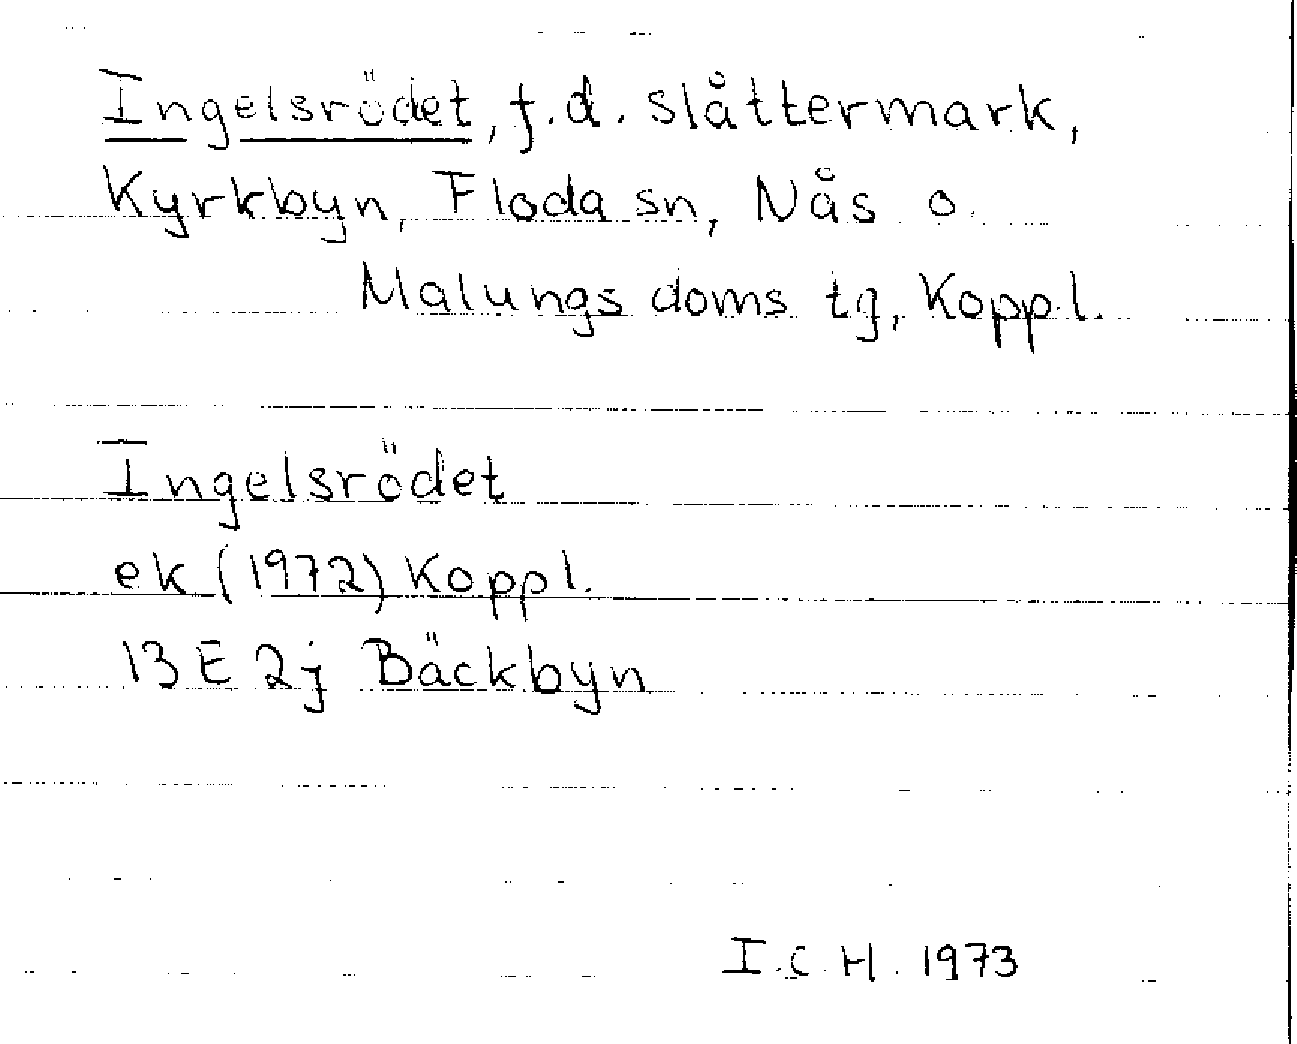 Ingelsrödet, f.d. slåttermark,
Kyrkbyn, Floda sn, Nås o.
Malungs doms tg, Koppl.
Ingelsrödet
ek (1972) Koppl.
13 E 2j Bäckbyn
I.C.H. 1973